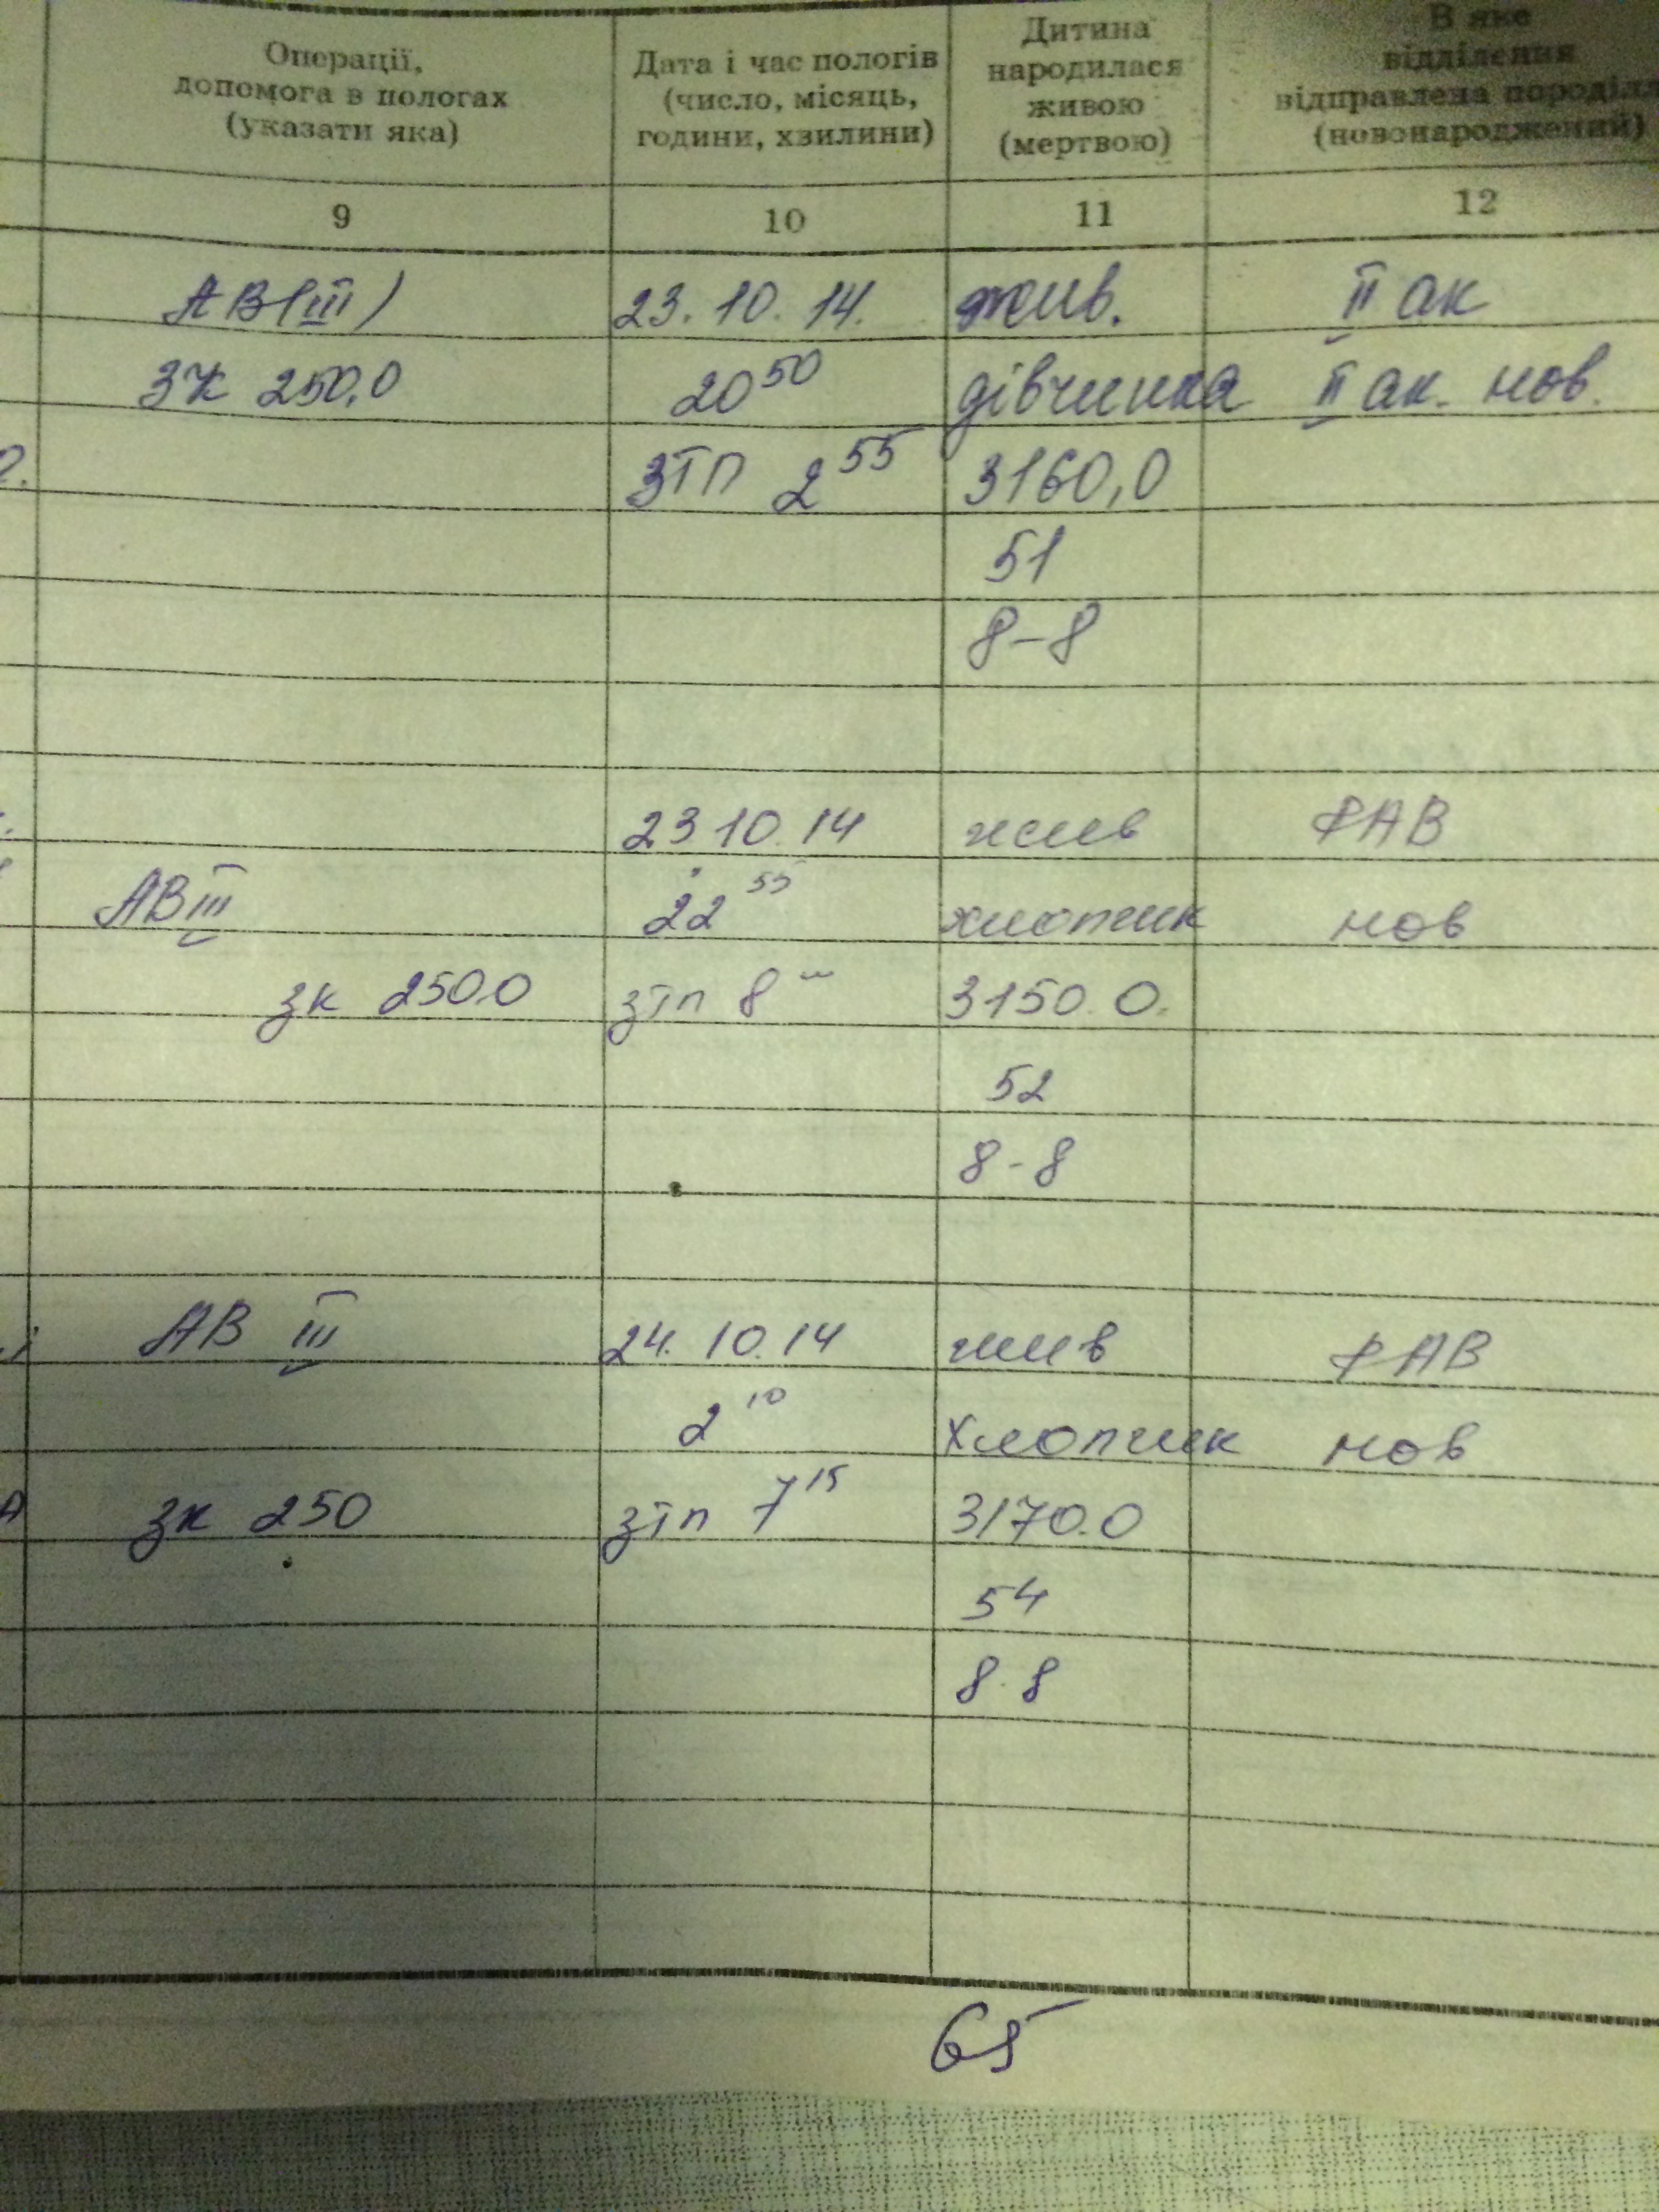 Операції,
допомога в пологах
(указати яка)
Дата і час пологів
(число, місяць,
години, хвилини)
Дитина
народилася
живою
(мертвою)
В яке
відділення
відправлена породілля
(новонароджений)
9 10 11 12
АВ(III) 23.10.14. жив. II ак
ЗК 250,0 20 50 дівчинка II ак. нов.
ЗТП 2 55 3160,0
51
8-8
23 10 14 жив ФАВ
АВ III 22 55 хлопчик нов
зк 250.0 зтп 8 3150.0.
52
8-8
АВ III 24.10.14 жив ФАВ
2 10 хлопчик нов
зк 250 зтп 7 15 3170.0
54
8.8
65